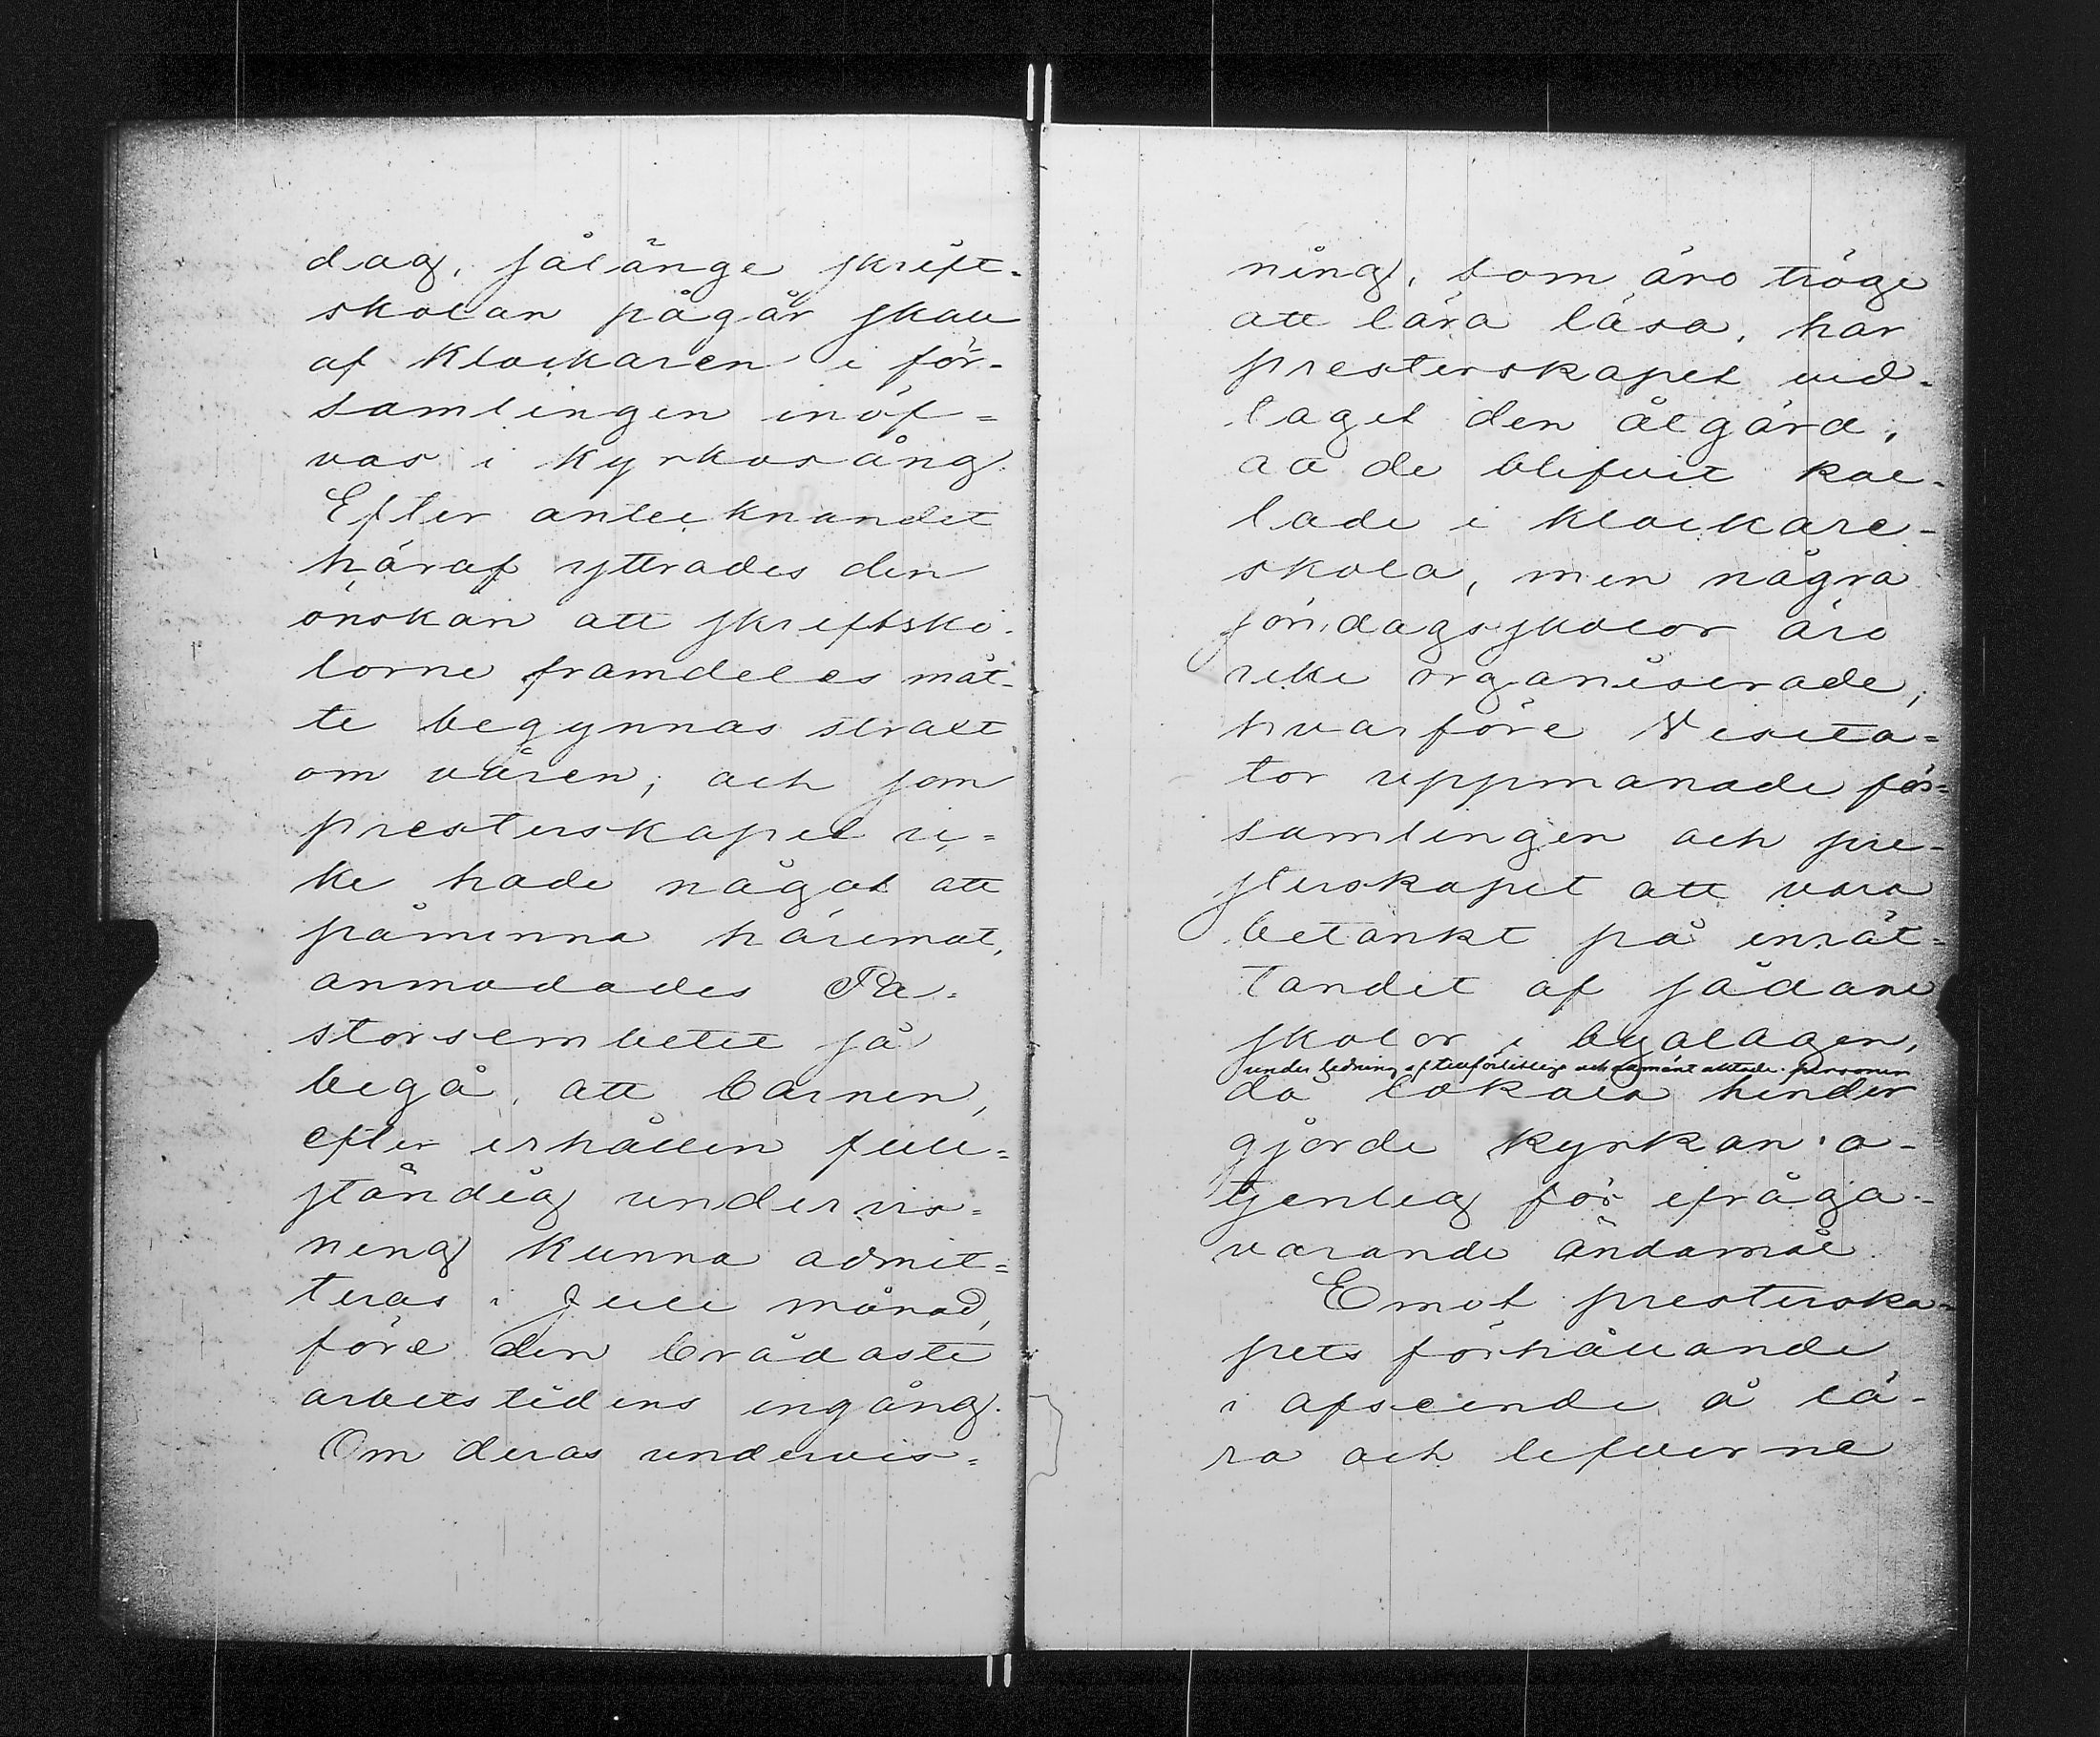 dag, sålänge skrift-
skolan pågår skall
af Klockaren i för-
samlingen inöf=
vas i Kyrkosång.
Efter antecknandet
häraf yttrades den
önskan att skriftsko-
lorne framdeles måt-
te begynnas straxt
om våren; och som
presterskapet ic=
ke hade något att
påminna häremot,
anmodades Pa=
storsembetet så
begå, att barnen,
efter erhållen full=
ständig undervis=
ning kunna admit=
teras i Juli månad,
före den brådaste
arbetstidens ingång.
Om deras undervis=
ning, som äro tröge
att lära läsa, har
presterskapet vid-
taget den åtgärd,
att de blifvit kal-
lade i Klockare-
skola, men några
söndagsskolor äro
icke organiserade,
hvarföre Visita=
tor uppmanade för=
samlingen och pre-
sterskapet att vara
betänkt på inrät=
tandet af sådane
skolor i byalagen,
under ledning af tillförlitlige och allmänt aktade personer
då lokala hinder
gjorde kyrkan o-
tjenlig för ifråga-
varande ändamål.
Emot presterska-
pets förhållande
i afseende å lä-
ra och lefverne